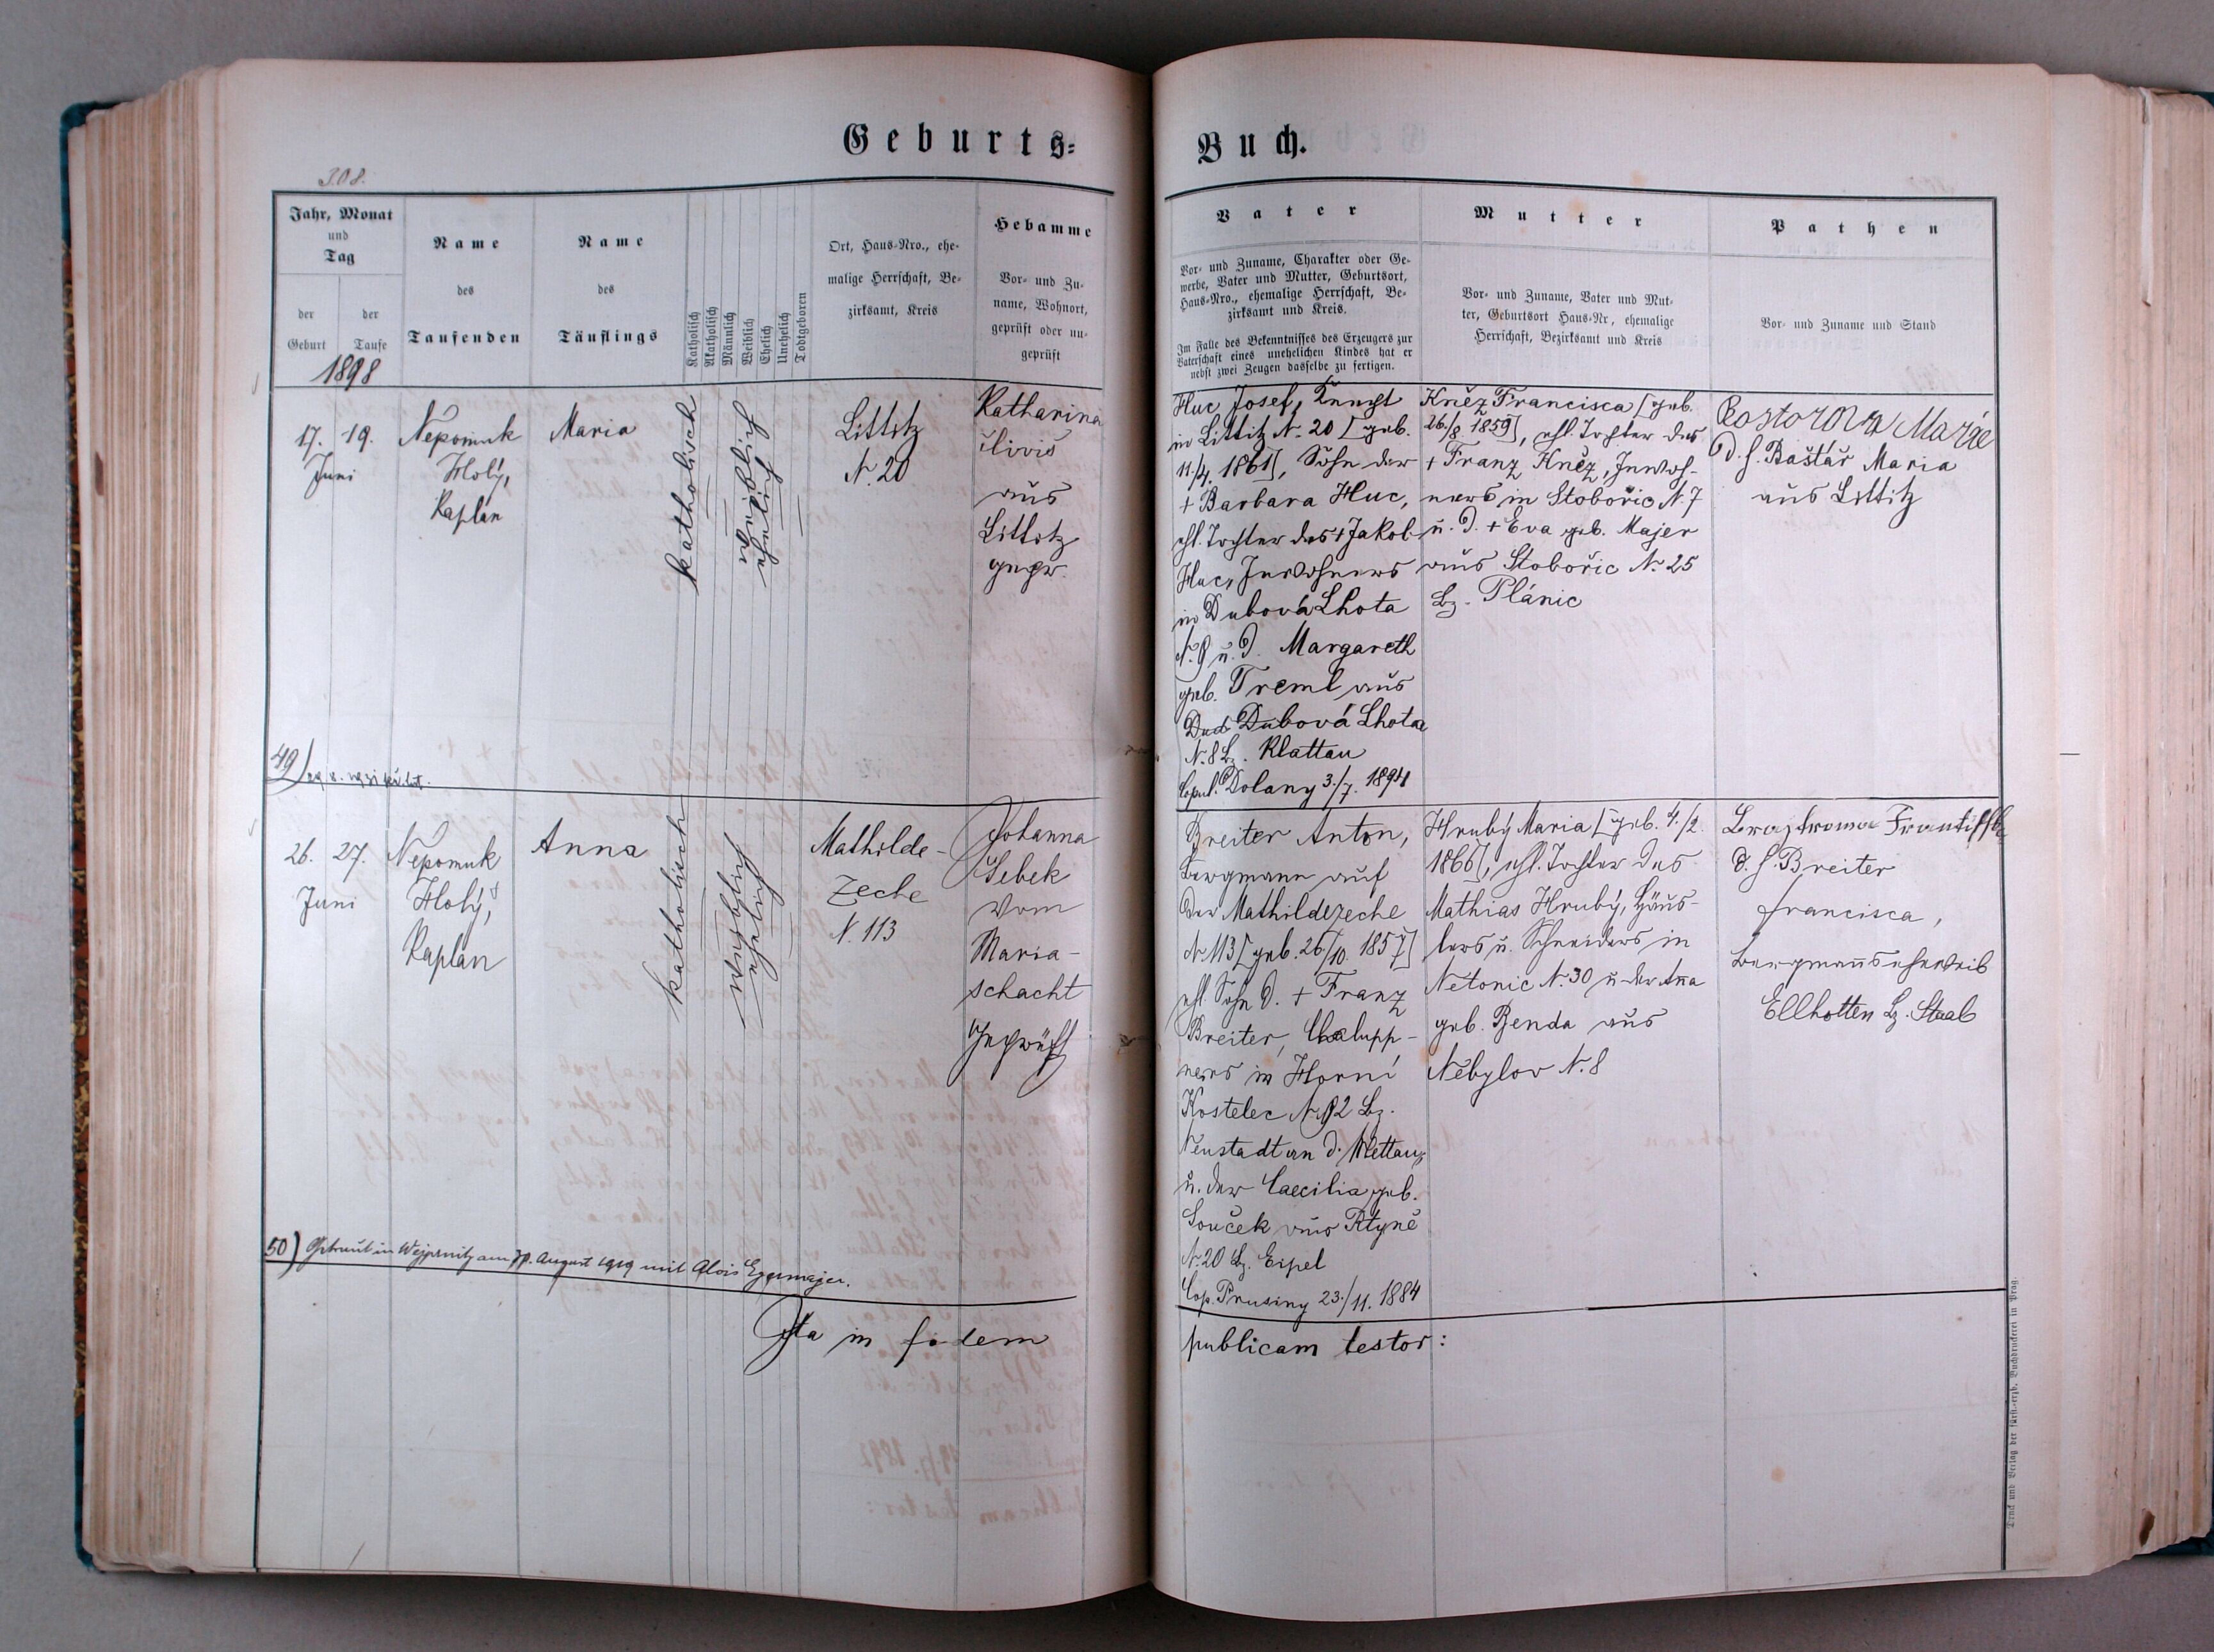 Geburts=
Buch.
308.
Jahr, Monat
und
Tag
der
Geburt
der
Taufe
Name
des
Taufenden
Name
des
Täuflings
Katholisch
Akatholisch
Männlich
Weiblich
Ehelich
Unehelich
Todtgeboren
Ort, Haus-Nro., ehe-
malige Herrschaft, Be-
zirksamt, Kreis
Hebamme
Vor- und Zu-
name, Wohnort,
geprüft oder un-
geprüft
Vater
Vor- und Zuname, Charakter oder Ge-
werbe, Vater und Mutter, Geburtsort,
Haus-Nro., ehemalige Herrschaft, Be-
zirksamt und Kreis.
Im Falle des Bekenntnisses des Erzeugers zur
Vaterschaft eines unehelichen Kindes hat er
nebst zwei Zeugen dasselbe zu fertigen.
Mutter
Vor- und Zuname, Vater und Mut-
ter, Geburtsort Haus-Nr, ehemalige
Herrschaft, Bezirksamt und Kreis
Pathen
Vor- und Zuname und Stand
1898
17. 19.
Juni
Nepomuk
Holý,
Kaplán
Maria
katholisch
weiblich
ehelich
Littitz
N. 20
Katharina
aus
Littitz
gepr.
Huc Josef, Knecht
in Littitz N. 20 [geb.
11./4. 1861], Sohn der
+ Barbara Huc,
ehl. Tochter des + Jakob
Huc, Inwohners
in Dubová Lhota
N. 8 u. d. Margareth
geb. Treml aus
Dubová Lhota
N. 8 Bz. Klattau
Copul. Dolany 3./7. 1894
Kněz Francisca [geb.
26./8 1859], ehl. Tochter des
+ Franz Kněz, Inwoh-
ners in Stobořic N. 7
u. d. + Eva geb. Majer
aus Stobořic N. 25
Bz. Plánic
Marie
d. h. Baštář Maria
aus Littitz
49)
26. 27.
Juni
Nepomuk
Holý,
Kaplán
Anna
katholisch
weiblich
ehelich
Mathilde-
zeche
N. 113
Johanna
Šebek
vom
Maria-
schacht
Geprüft
Breiter Anton,
Bergmann auf
der Mathildezeche
N. 113 [geb. 26/10. 1857]
ehl. Sohn d. + Franz
Breiter, Chalupp-
ners in Horní
Kostelec N. 92 Bz.
Neustadt an d. Mettau,
u. der Caecilia geb.
Souček aus Rtyně
N. 20 Bz. Eipel
Cop. Prusiny 23./11. 1884
Hrubý Maria [geb. 4./2.
1866], ehl. Tochter des
Mathias Hrubý, Häus-
lers u. Schneiders in
Netonic N. 30 u. der Anna
geb. Benda aus
Nebylov N. 8
d. h. Breiter
Francisca,
Bergmannseheweib
Ellhotten Bz. Staab
50) Getraut in Wejprnitz am August 1919 mit Alois Eggermajer.
Ita in fidem
publicam testor:
Druck und Verlag der fürst.-erzb. Buchdruckerei in Prag.